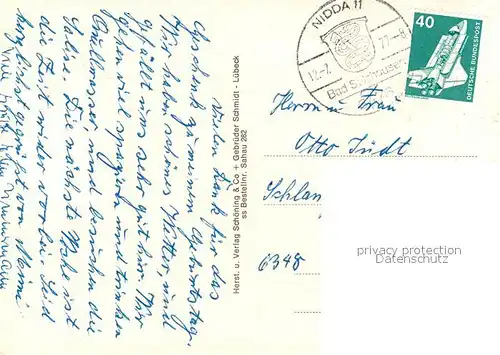 Vielen Dank für das
Geschenk zu meinem Geburtstag.
Wir haben schönes Wetter und
gefällt uns sehr gut hier. Wir
gehen viel spazieren und trinken
Quellwasser, und besuchen die
Saline. Die nächste Woche ist
die Zeit wieder vorbei. Seid
herzlichst gegrüßt von Mimi
Viele Grüße
Herst. u. Verlag Schöning & Co + Gebrüder Schmidt - Lübeck
ss Bestellnr. Sahau 282
NIDDA 11
12.-7. 77-8
Bad Salzhausen
40
DEUTSCHE BUNDESPOST
Herrn u Frau
Otto Jüdt
Schlan
6348
privacy protection
Datenschutz